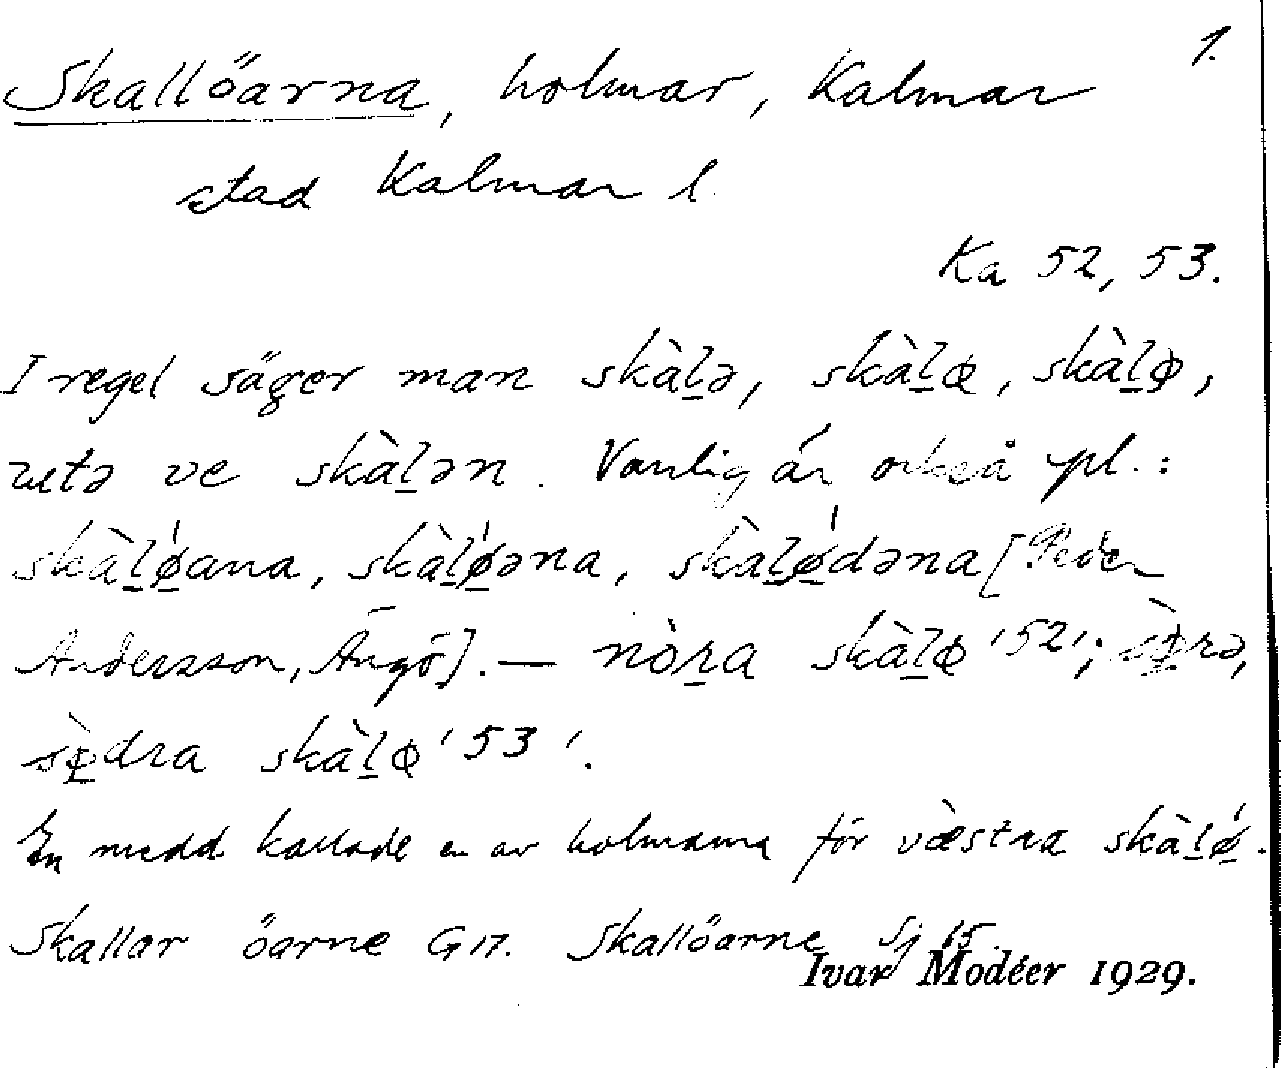 1.
Skallöarna, holmar, Kalmar
stad Kalmar l.
Ka 52, 53.
I regel säger man skàl̲ə, skàl̲ꬾ, skàl̲ꬾ,
utə ve skàl̲ən. Vanlig är också pl.:
skàl̲ǿ̲ana, skàl̲ǿ̲əna, skàl̲ǿ̲dəna [Peder
Andersson, Ängö]. — nòr̲a skàl̲ꬾ '52'; sꬾ̲̀rə,
sꬾ̲̀dra skàl̲ꬾ '53'.
En medd. kallade en av holmarna för væ̀stra skàl̲ǿ̲.
Skallar öarne G17. Skallöarne Sj 15.
Ivar Modéer 1929.